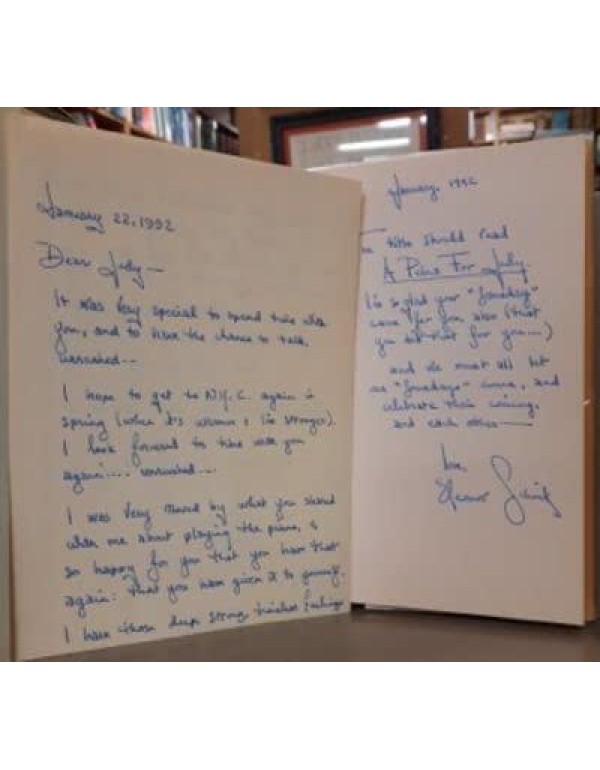 January 22, 1992
Dear Judy—
It was very special to spend time with
you, and to have the chance to talk,
unrushed...
I hope to get to N.Y.C. again in
spring (when it's warmer & I'm stronger).
I look forward to time with you
again.... unrushed....
I was very moved by what you shared
with me about playing the piano, &
so happy for you that you have that
again: that you have given it to yourself.
I have those deep strong feelings
January, 1992
title should read
A Piano For Judy.
I'm so glad your "someday"
came for you also (that
you did that for you—)
and we must all let
our "somedays" come, and
celebrate their coming,
and each other—
love,
Eleanor